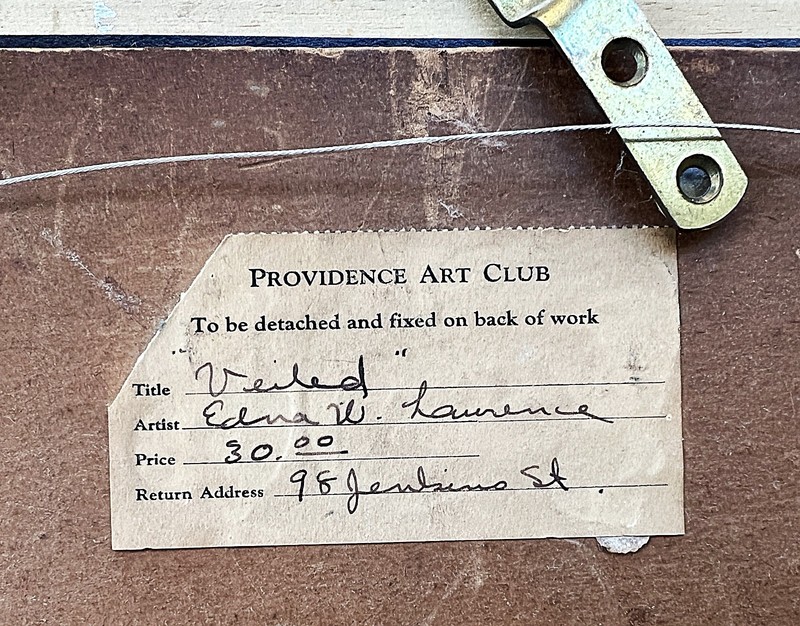 PROVIDENCE ART CLUB
To be detached and fixed on back of work
Title "Veiled"
Artist Edna W. Lawrence
Price 30.00
Return Address 98 Jenkins St.